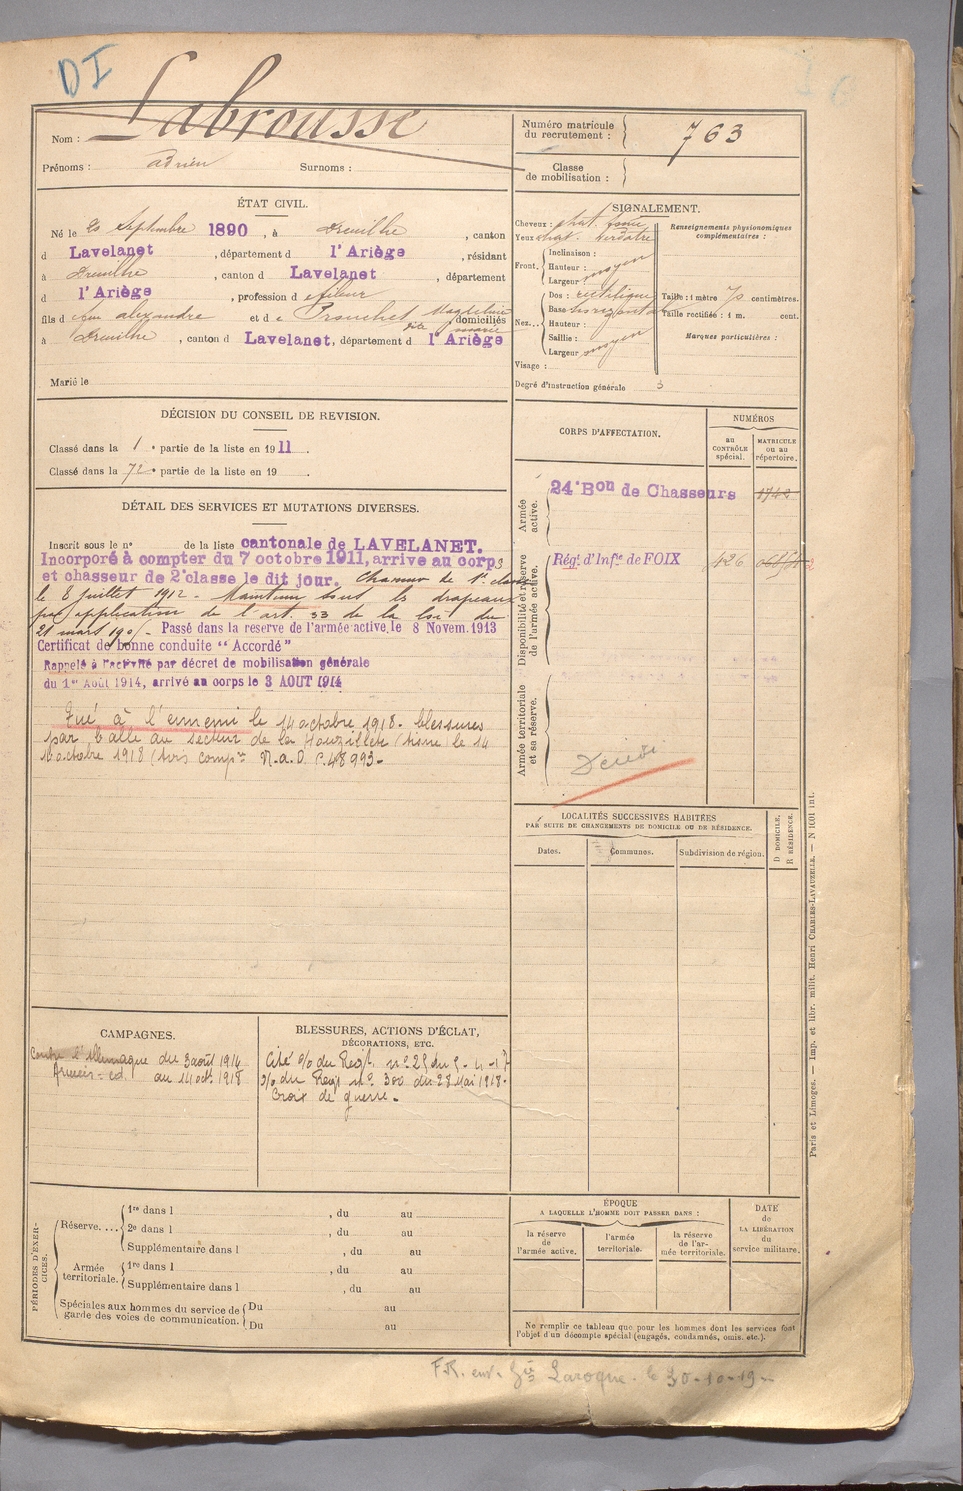 DI
Nom : Labrousse
Prénoms : adrien Surnoms :
Numéro matricule
du recrutement : 763
Classe
de mobilisation :
ÉTAT CIVIL.
Né le 20 Septembre 1890, à Dreuilhe, canton
d Lavelanet, département d l'Ariège, résidant
à Dreuilhe, canton d Lavelanet, département
d l'Ariège, profession d fileur
fils d feu alexandre et d e Prouchet Magdeleine
dite marie domiciliés
à Dreuilhe, canton d Lavelanet, département d l'Ariège
Marié le
SIGNALEMENT.
Cheveux : chat. foncé
Yeux chat. verdâtre
Front. Inclinaison :
Hauteur :
Largeur : moyen
Nez... Dos : rectiligne
Base horizontale
Hauteur :
Saillie :
Largeur moyen
Visage :
Degré d'instruction générale 3
Renseignements physionomiques
complémentaires :
Taille : 1 mètre 70 centimètres.
Taille rectifiée : 1 m. cent.
Marques particulières :
DÉCISION DU CONSEIL DE REVISION.
Classé dans la 1e partie de la liste en 1911.
Classé dans la partie de la liste en 19 .
DÉTAIL DES SERVICES ET MUTATIONS DIVERSES.
Inscrit sous le n° de la liste cantonale de LAVELANET.
Incorporé à compter du 7 octobre 1911, arrive au corps
et chasseur de 2e classe le dit jour. Chasseur de 1e classe
le 8 juillet 1912 - Maintenu sous les drapeaux
par application de l'art. 33 de la loi du
21 mars 1905 - Passé dans la reserve de l'armée active, le 8 Novem. 1913
Certificat de bonne conduite " Accordé"
Rappelé à l'activité par décret de mobilisation générale
du 1er Août 1914, arrivé au corps le 3 AOUT 1914
Tué à l'ennemi le 14 octobre 1918 - blessures
par balle au secteur de la (Aisne le 14
octobre 1918 (avis M.a.D. 48993-
CORPS D'AFFECTATION.
NUMÉROS
au
CONTRÔLE
spécial.
MATRICULE
ou au
répertoire.
Armée
active.
24e Bon de Chasseurs 1742
Disponibilité et réserve
de l'armée active.
Rég. d'Infie de FOIX 426
Armée territoriale
et sa réserve.
Décédé
LOCALITÉS SUCCESSIVES HABITÉES
PAR SUITE DE CHANGEMENTS DE DOMICILE OU DE RÉSIDENCE.
Dates. Communes. Subdivision de région.
D DOMICILE,
R RÉSIDENCE.
CAMPAGNES.
Contre l'Allemagne du 3 août 1914
au 14 oct. 1918
BLESSURES, ACTIONS D'ÉCLAT,
DÉCORATIONS, ETC.
Cité o/o du Regt. n° 25 du 5-4-17
o/o du Regt n° 300 du 28 Mai 1918.
Croix de guerre.
PÉRIODES D'EXER-
CICES.
Réserve.... 1re dans l , du au
2e dans l , du au
Supplémentaire dans l , du au
Armée
territoriale. 1re dans l , du au
Supplémentaire dans l , du au
Spéciales aux hommes du service de
garde des voies de communication. Du au
Du au
ÉPOQUE
A LAQUELLE L'HOMME DOIT PASSER DANS :
la réserve
de
l'armée active.
l'armée
territoriale.
la réserve
de l'ar-
mée territoriale.
DATE
de
LA LIBÉRATION
du
service militaire.
Ne remplir ce tableau que pour les hommes dont les services font
l'objet d'un décompte spécial (engagés, condamnés, omis, etc.).
Paris et Limoges. — Imp. et libr. milit. Henri CHARLES-LAVAUZELLE. — N 1601 int.
F.R. env. Gie Laroque - le 30-10-19-